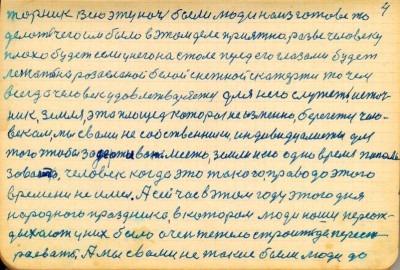 4
торник всю эту ночь были люди на изготове по
делом чего им было в этом деле приятно разве человеку
плохо будет если у него на столе пред его глазами будет
лежать на розасланой белой снежной скатерти то чем
всегда человек удовлетворяется для него служет источ
ник, земля, эта площед которая неизменно, бережет чело
века, мы с вами не собственники, индивидуалисты для
того чтобы задерживать место, земли но его одно время пополь
зовать, человек когда это такого, право до этого
времени не имел. А сейчас в этом году этого дня
народного праздника, в котором люди наши переот
дыхают у них было очен тежело строить да перест
раевать, А мы с вами не такие были люди до